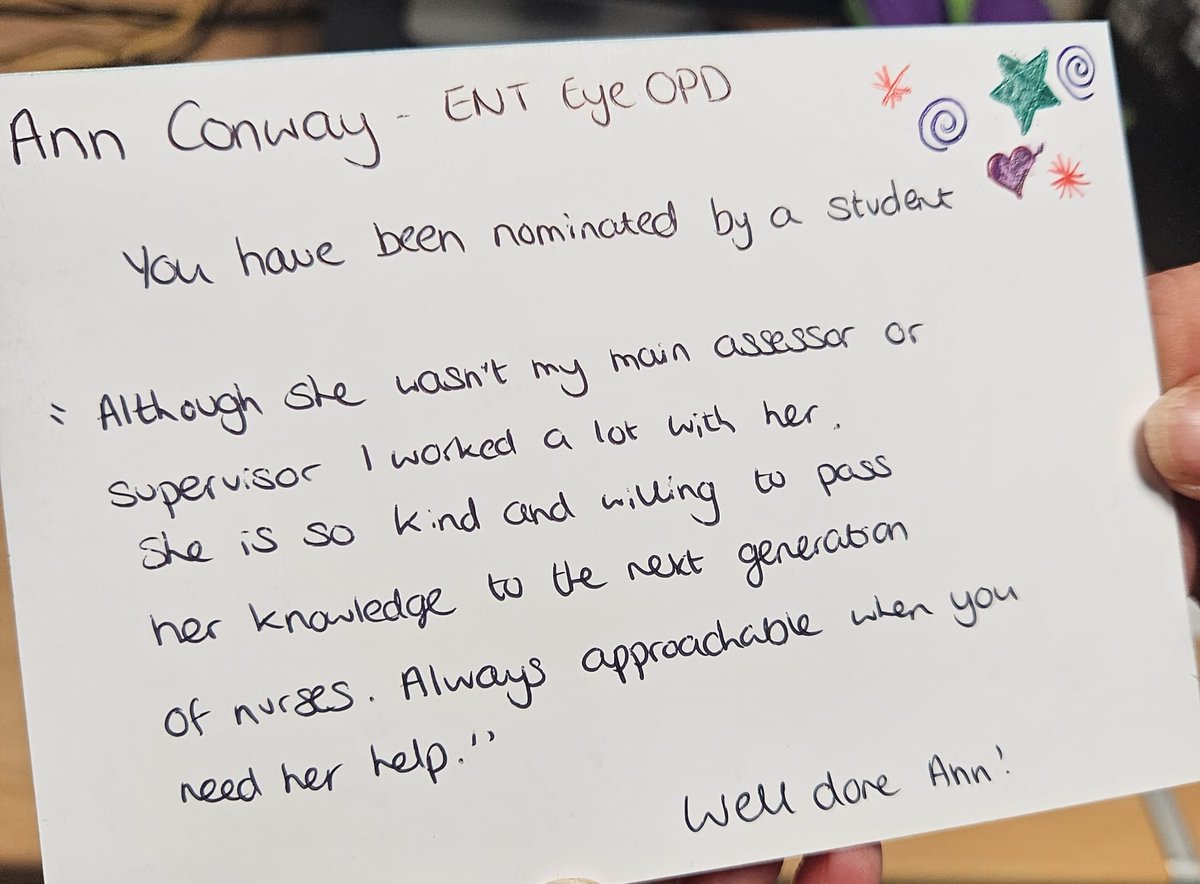 Ann Conway - ENT Eye OPD
You have been nominated by a student
"Although she wasn't my main assessor or
supervisor I worked a lot with her.
She is so kind and willing to pass
her knowledge to the next generation
of nurses. Always approachable when you
need her help."
Well done Ann!